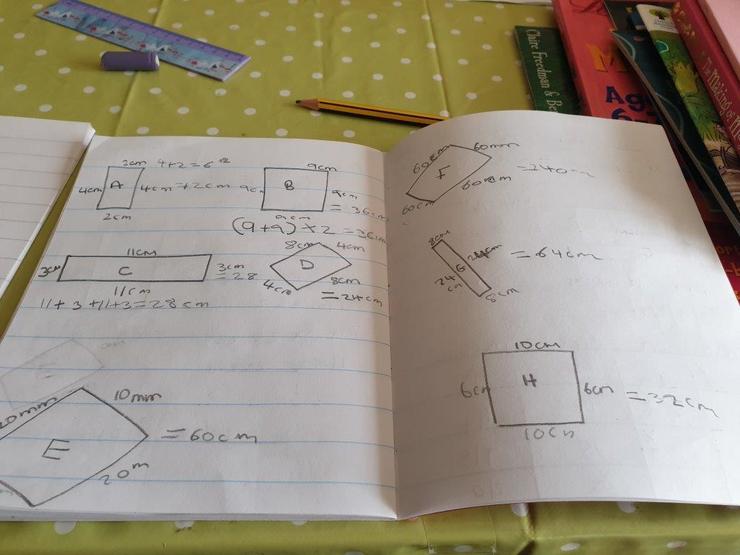 2cm 4+2=6
4cm A 4cm+2cm
2cm
9cm
9cm B 9cm
9cm = 36cm
(9+9)×2=36cm
11cm
3cm C 3cm
=28
11cm
11+3+11+3=28cm
8cm 4cm
D
4cm 8cm
=24cm
20mm 10mm
E =60cm
20m
60cm 60mm
F =240
60cm 60cm
8cm 24cm
G =64cm
24
cm 8cm
10cm
6cm H 6cm =32cm
10cm
Claire Freedman & Be
Ag
The Making of M